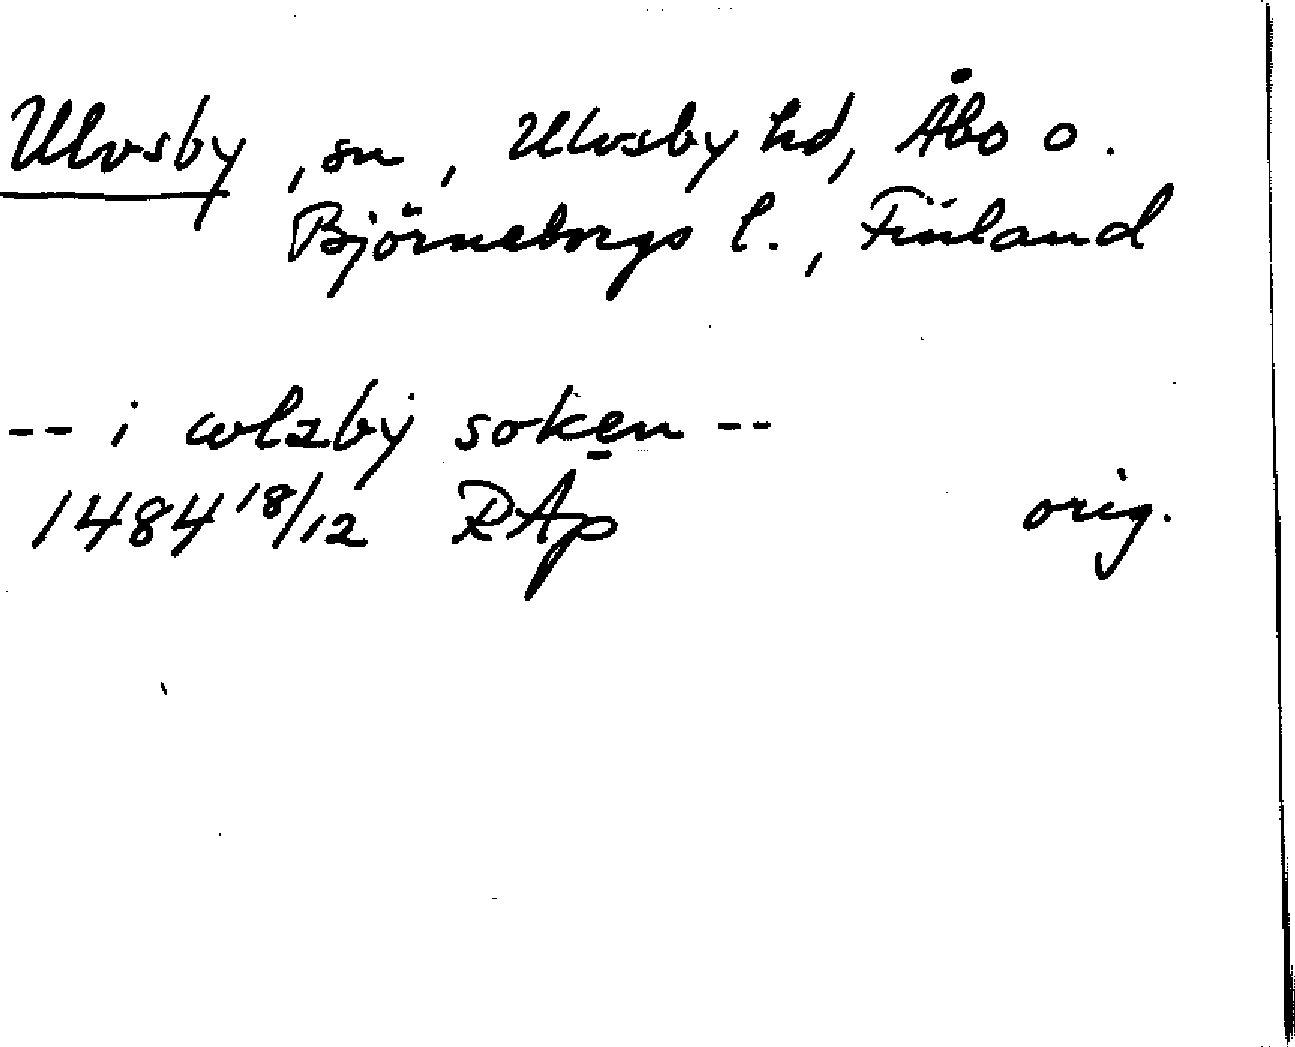 Ulvsby, sn, Ulvsby hd, Åbo o.
Björneborgs l., Finland
-- i wlzby soken --
1484 18/12 RAp orig.